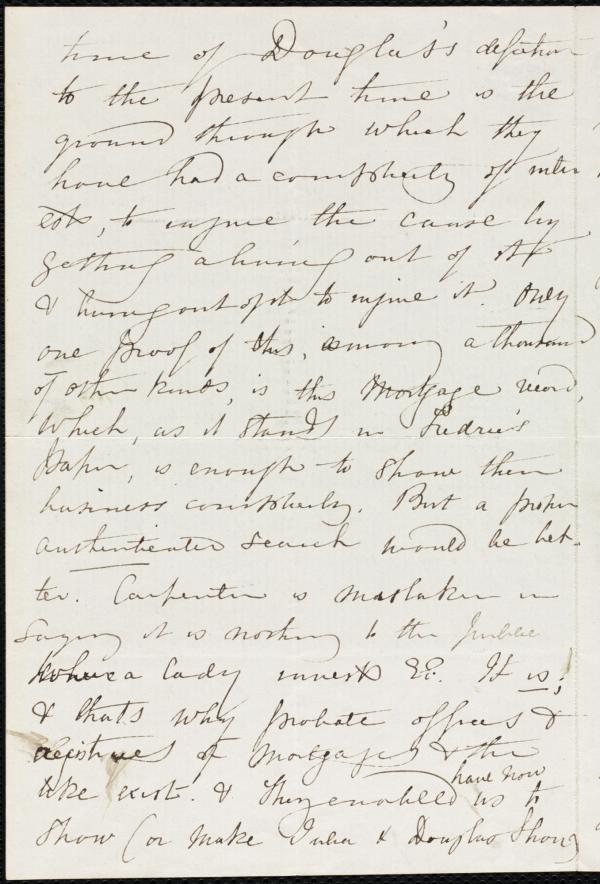 time of Douglas's defection
to the present time is the
ground through which they
have had a complicity of inter
ests, to injure the cause by
getting a living out of it
& living out of it to injure it. Only
one proof of this, among a thousand
of other kinds, is this Mortgage record,
which, as it stands in
Paper, is enough to show their
business complicity. But a proper
authenticated search would be bet-
ter. Carpenter is mistaken in
saying it is nothing to the public
where a lady invests &c. It is;
& that's why probate offices &
registries of mortgages & the
like exist. & they have now enabled us to
show (or make Julia & Douglas show)